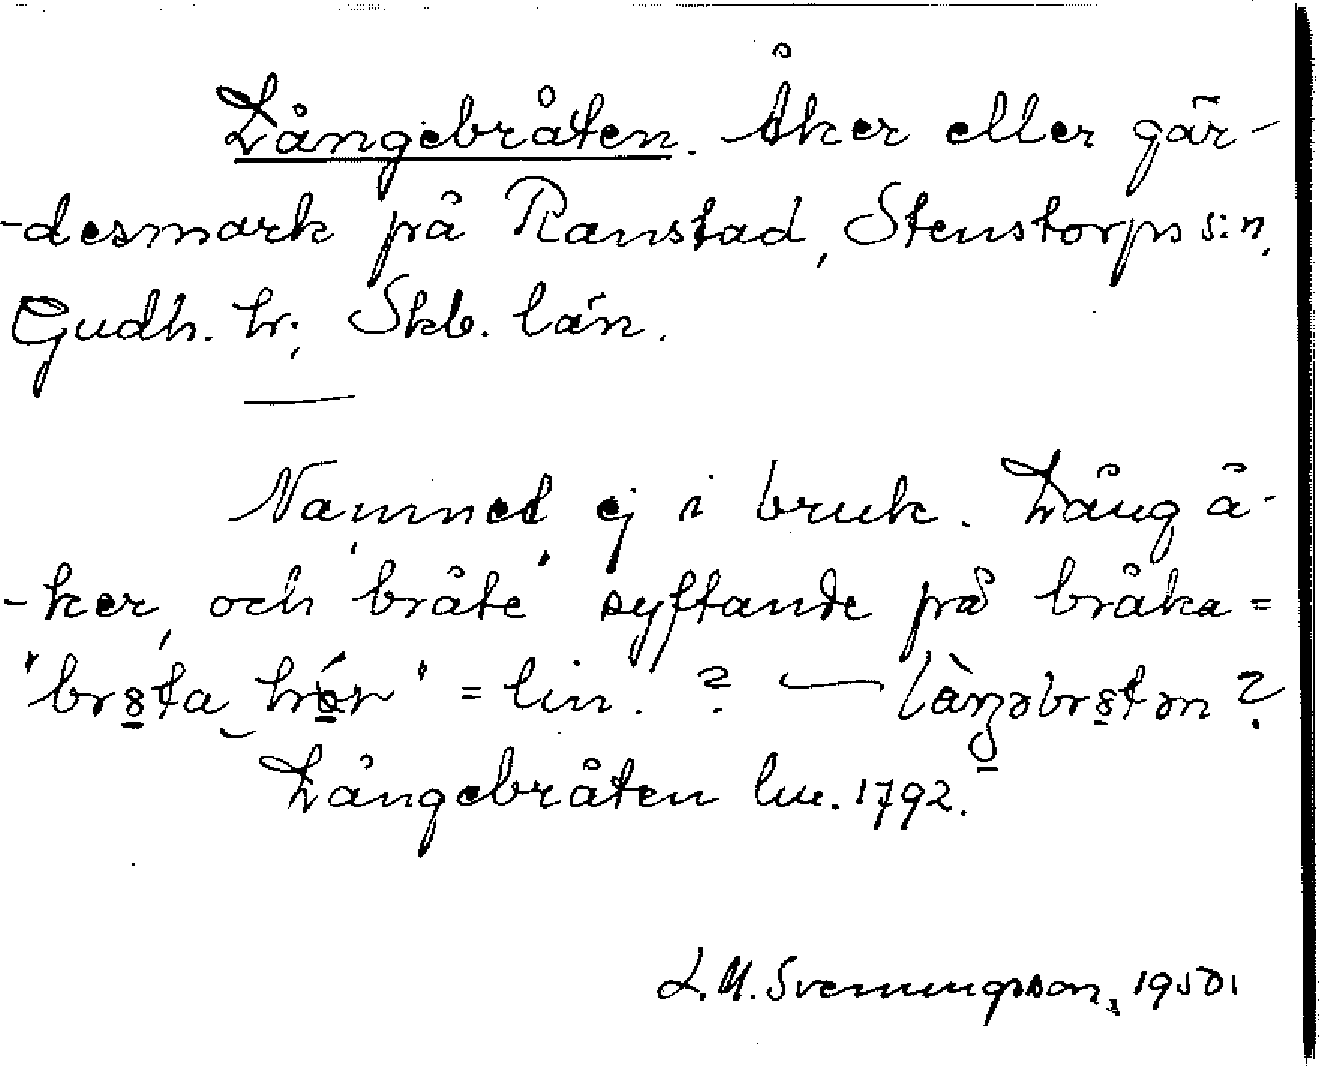 Långebråten. Åker eller gär-
-desmark på Ranstad, Stenstorps s:n,
Gudh. hr; Skb. län.
Namnet ej i bruk. Lång å-
-ker, och "bråte" syftande på bråka =
"brɵta hɵr" = lin. ? — làŋəbrɵtən ?
Långebråten lm. 1792.
L. M. Svenungsson, 1950